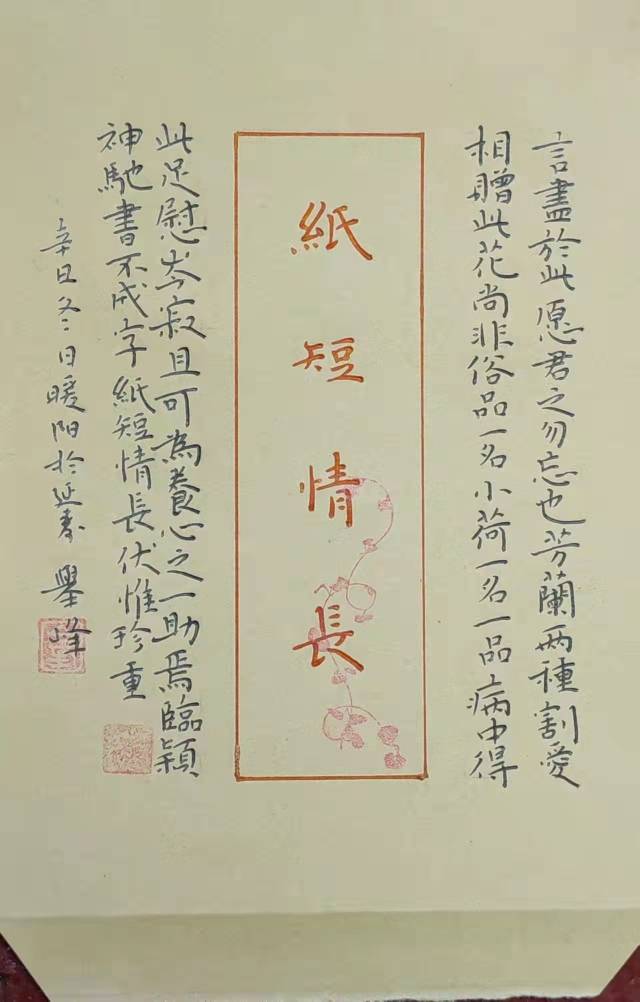 言盡於此愿君之勿忘也芳蘭兩種割愛
相贈此花尚非俗品一名小荷一名一品病中得
紙短情長
此足慰岑寂且可為養心之一助焉臨穎
神馳書不成字紙短情長伏惟珍重
辛丑冬日暖陽於延壽 舉峰